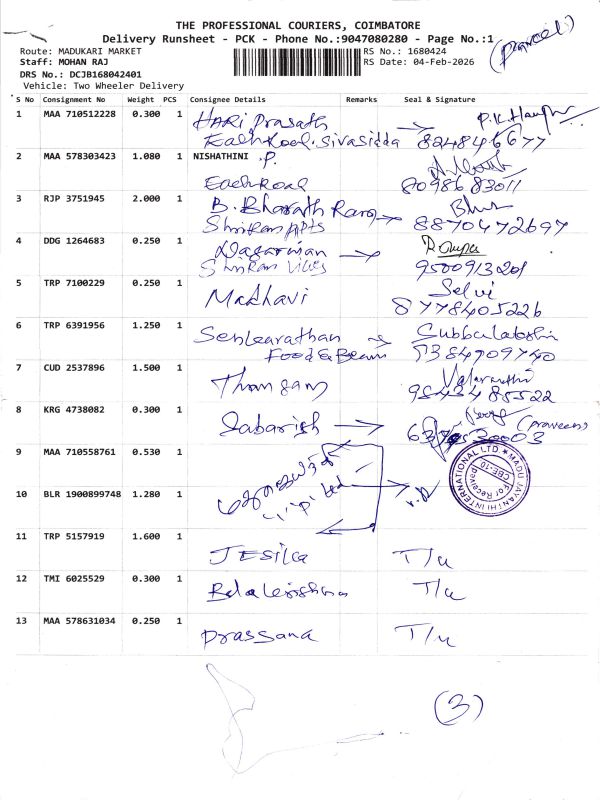 THE PROFESSIONAL COURIERS, COIMBATORE
Delivery Runsheet - PCK - Phone No.:9047080280 - Page No.:1
Route: MADUKARI MARKET
RS No.: 1680424
Staff: MOHAN RAJ
RS Date: 04-Feb-2026
DRS No.: DCJB168042401
Vehicle: Two Wheeler Delivery
S No Consignment No Weight PCS Consignee Details Remarks Seal & Signature
1 MAA 710512228 0.300 1 HARi Prasath
824846677
2 MAA 578303423 1.080 1 NISHATHINI .P.
8098683011
3 RJP 3751945 2.000 1 B. Bharath Raroj
8870472697
4 DDG 1264683 0.250 1
9500913201
5 TRP 7100229 0.250 1 Madhavi Selvi
8778405226
6 TRP 6391956 1.250 1
Food & Bean 9384709740
7 CUD 2537896 1.500 1 Thangam
8 KRG 4738082 0.300 1 Sabarish (praveen)
9 MAA 710558761 0.530 1
MADU JAYANTHI INTERNATIONAL LTD
10 BLR 1900899748 1.280 1
11 TRP 5157919 1.600 1 JESilca T/u
12 TMI 6025529 0.300 1 T/u
13 MAA 578631034 0.250 1 Prassana T/u
(3)